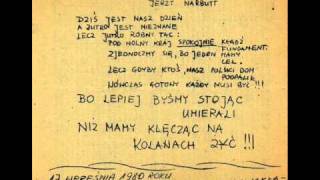 JERZY NARBUTT
DZIŚ JEST NASZ DZIEŃ
A JUTRO JEST NIEZNANE
LECZ JUTRO RÓBMY TAK:
POD WOLNY KRAJ SPOKOJNIE KŁADŹ
FUNDAMENT.
ZJEDNOCZMY SIĘ, BO JEDEN MAMY
CEL.
LECZ GDYBY KTOŚ, NASZ POLSKI DOM
PODPALIŁ
WÓWCZAS GOTOWY KAŻDY MUSI BYĆ!!!
BO LEPIEJ BYŚMY STOJĄC
UMIERALI
NIŻ MAMY KLĘCZĄC NA
KOLANACH ŻYĆ!!!
17 WRZEŚNIA 1980 ROKU